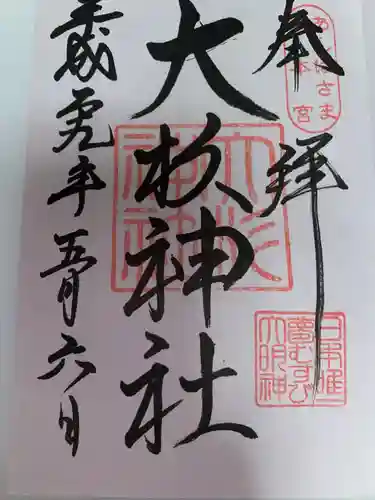 奉拝
あんばさま
本宮
日本唯一
夢むすび
大明神
大杉神社
大杉
神社
平成元年五月六日